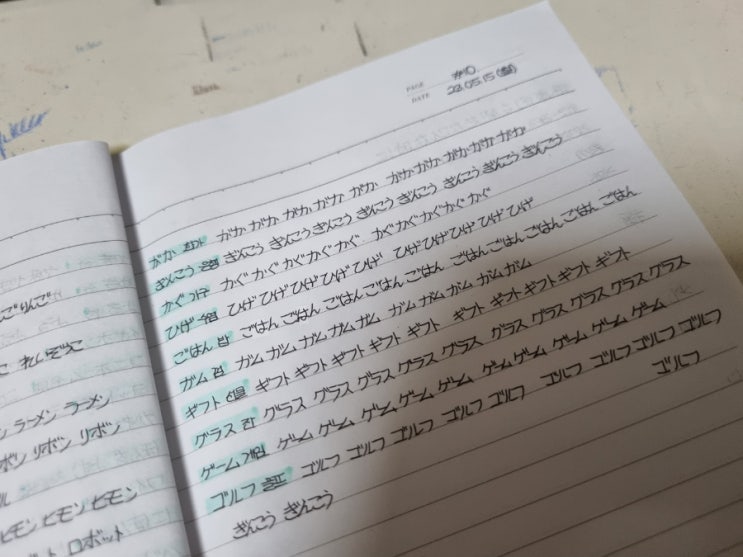 PAGE #10
DATE 23.05.15 (월)
がか 화가 がか がか がか がか がか がか がか がか がか がか
ぎんこう 은행 ぎんこう ぎんこう ぎんこう ぎんこう ぎんこう ぎんこう ぎんこう ぎんこう
かぐ 가구 かぐ かぐ かぐ かぐ かぐ かぐ かぐ かぐ かぐ
ひげ 수염 ひげ ひげ ひげ ひげ ひげ ひげ ひげ ひげ ひげ ひげ
ごはん 밥 ごはん ごはん ごはん ごはん ごはん ごはん ごはん ごはん ごはん ごはん
ガム 껌 ガム ガム ガム ガム ガム ガム ガム ガム ガム ガム
ギフト 선물 ギフト ギフト ギフト ギフト ギフト ギフト ギフト ギフト ギフト ギフト
グラス 잔 グラス グラス グラス グラス グラス グラス グラス グラス グラス
ゲーム 게임 ゲーム ゲーム ゲーム ゲーム ゲーム ゲーム ゲーム ゲーム ゲーム
ゴルフ 골프 ゴルフ ゴルフ ゴルフ ゴルフ ゴルフ ゴルフ ゴルフ ゴルフ ゴルフ
ゴルフ
ぎんこう ぎんこう
りんご
れいぞうこ
ラーメン ラーメン
リボン リボン
ヒモン ヒモン ヒモン
ロボット